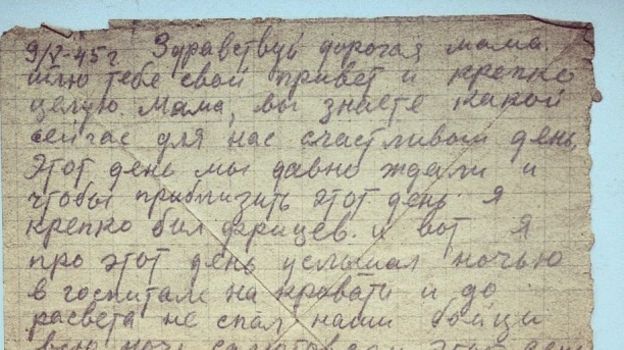 9/V-45г. Здравствуй дорогая мама.
шлю тебе свой привет и крепко
целую. Мама, вы знаете какой
сейчас для нас счастливый день,
Этот день мы давно ждали и
чтобы приблизить этот день я
крепко бил фрицев. и вот я
про этот день услышал ночью
в госпитале на кровати и до
расвета не спал наши бойци
всю ночь салютовали этот